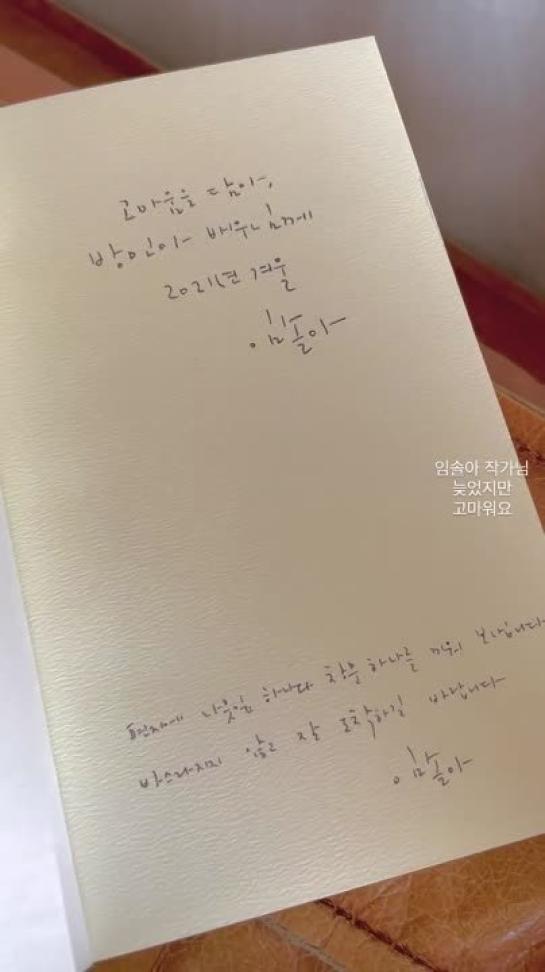 고마움을 담아,
방민아 배우님께
2021년 겨울
임솔아
임솔아 작가님
늦었지만
고마워요
편지에 나뭇잎 하나와 창문 하나를 끼워 보냅니다
바스라지지 않고 잘 도착하길 바랍니다
임솔아